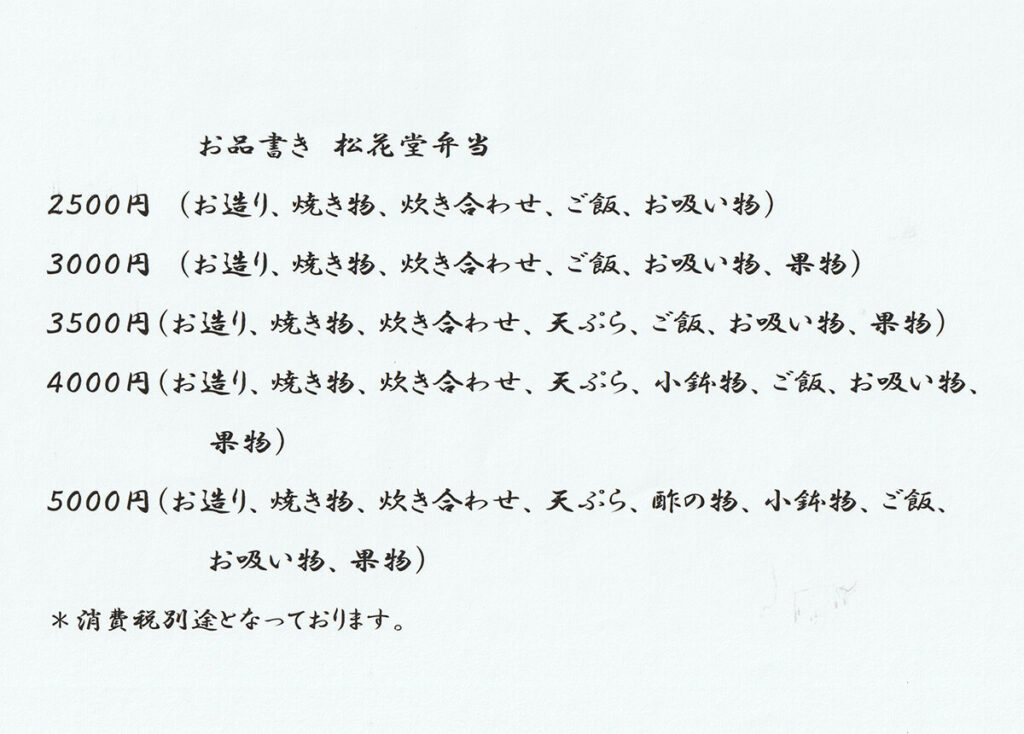 お品書き 松花堂弁当
2500円 (お造り、焼き物、炊き合わせ、ご飯、お吸い物)
3000円 (お造り、焼き物、炊き合わせ、ご飯、お吸い物、果物)
3500円(お造り、焼き物、炊き合わせ、天ぷら、ご飯、お吸い物、果物)
4000円(お造り、焼き物、炊き合わせ、天ぷら、小鉢物、ご飯、お吸い物、
果物)
5000円(お造り、焼き物、炊き合わせ、天ぷら、酢の物、小鉢物、ご飯、
お吸い物、果物)
＊消費税別途となっております。